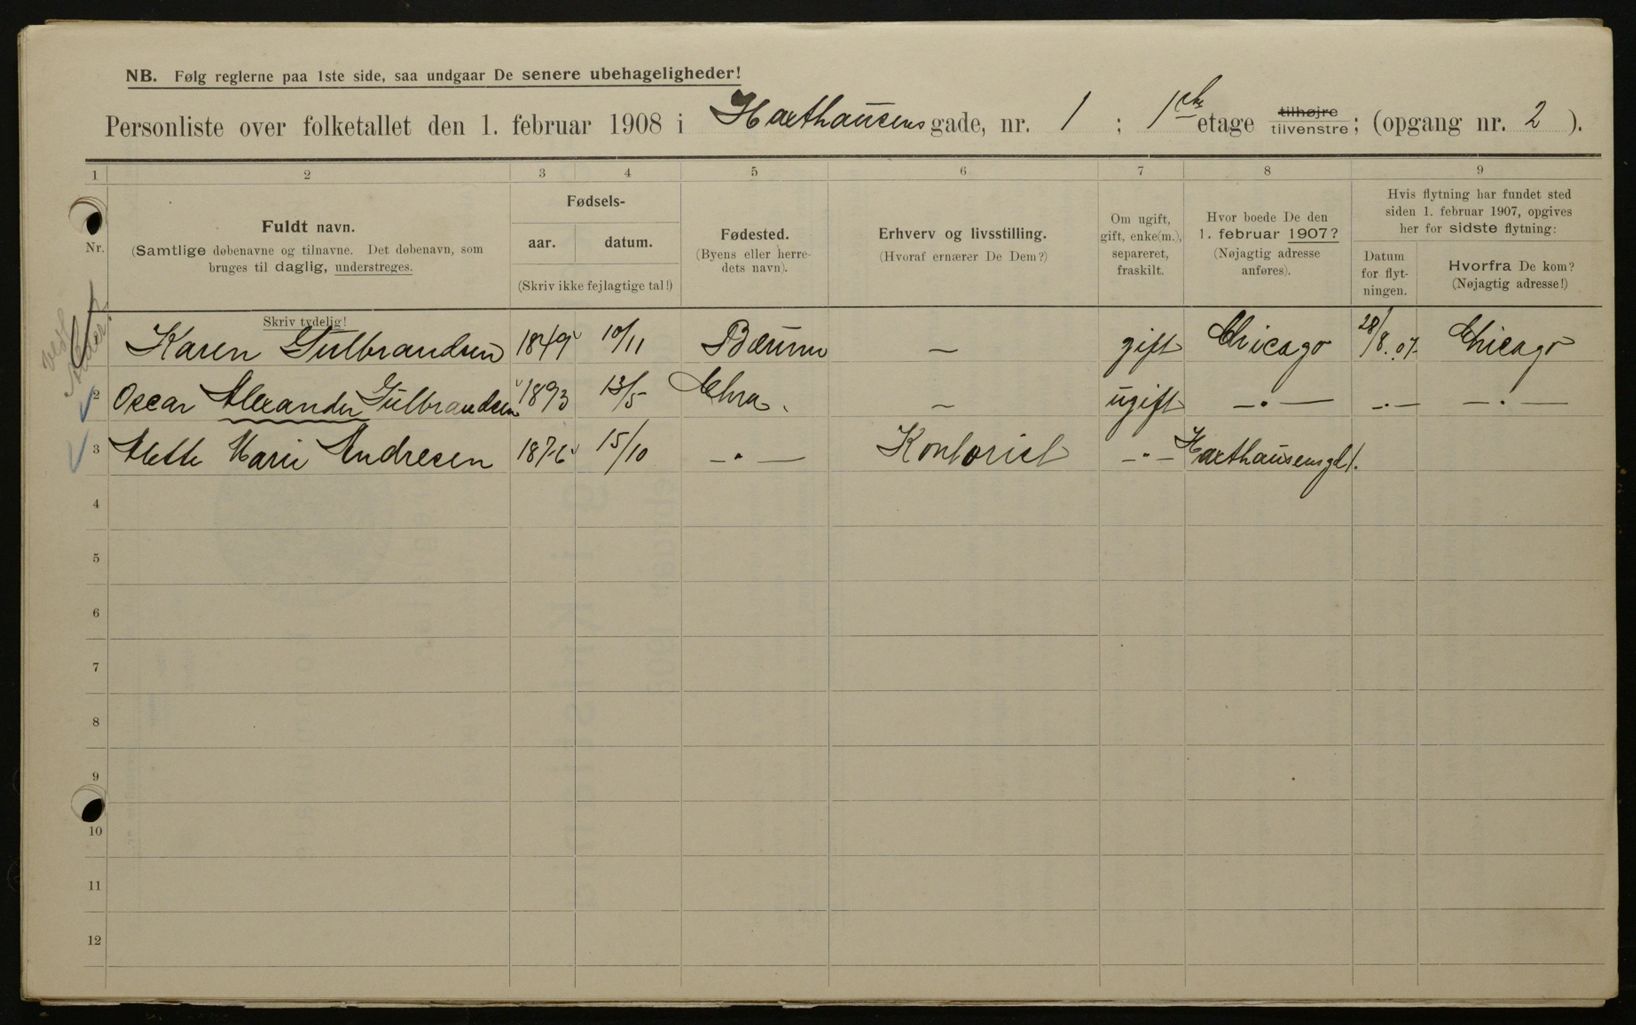 NB. Følg reglerne paa 1ste side, saa undgaar De senere ubehageligheder!
Personliste over folketallet den 1. februar 1908 i Haxthausens gade, nr. 1 ; 1ste etage tilhøjre tilvenstre; (opgang nr. 2 ).
1 2 3 4 5 6 7 8 9
Nr.
Fuldt navn.
(Samtlige døbenavne og tilnavne. Det døbenavn, som
bruges til daglig, understreges.
Skriv tydelig!
Fødsels-
aar. datum.
(Skriv ikke fejlagtige tal!)
Fødested.
(Byens eller herre-
dets navn).
Erhverv og livsstilling.
(Hvoraf ernærer De Dem?)
Om ugift,
gift, enke(m.),
separeret,
fraskilt.
Hvor boede De den
1. februar 1907?
(Nøjagtig adresse
anføres).
Hvis flytning har fundet sted
siden 1. februar 1907, opgives
her for sidste flytning:
Datum
for flyt-
ningen.
Hvorfra De kom?
(Nøjagtig adresse!)
Karen Gulbrandsen 1849 10/11 Bærum — gift Chicago 28/8.07. Chicago
2 Oscar Alexander Gulbrandsen 1893 13/5 Chra. — ugift —•— —•— —•—
3 Mette Marie Andresen 1876 15/10 —•— Kontorist —•— Haxthausensgd 1.
4
5
6
7
8
9
10
11
12